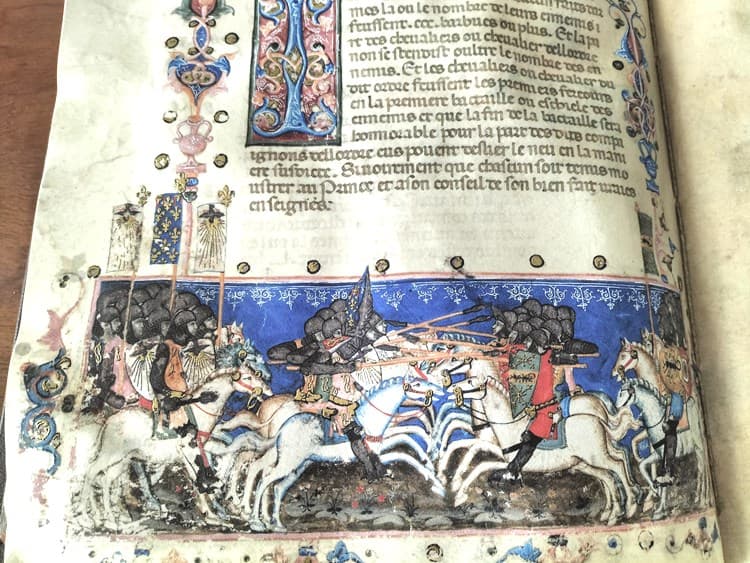 mes la ou le nombre de leurs ennemis i
feussent .ccc. barbues ou plus. Et la pi
non se stendist oultre le nombre des en
nemis. Et les chevaliers ou chevalier du
dit ordre feussent les premiers
en la premiere bactaille ou eschiele des
ennemis et que la fin de la bactaille sera
honnorable pour la part des dis compi
ignons dellordre eus povent deslier le neu en la mani
ere susdicte. Sainement que chascun soit tenus mo
ustrer au Prince et a son conseil de son bien fait vraies
enseignes.